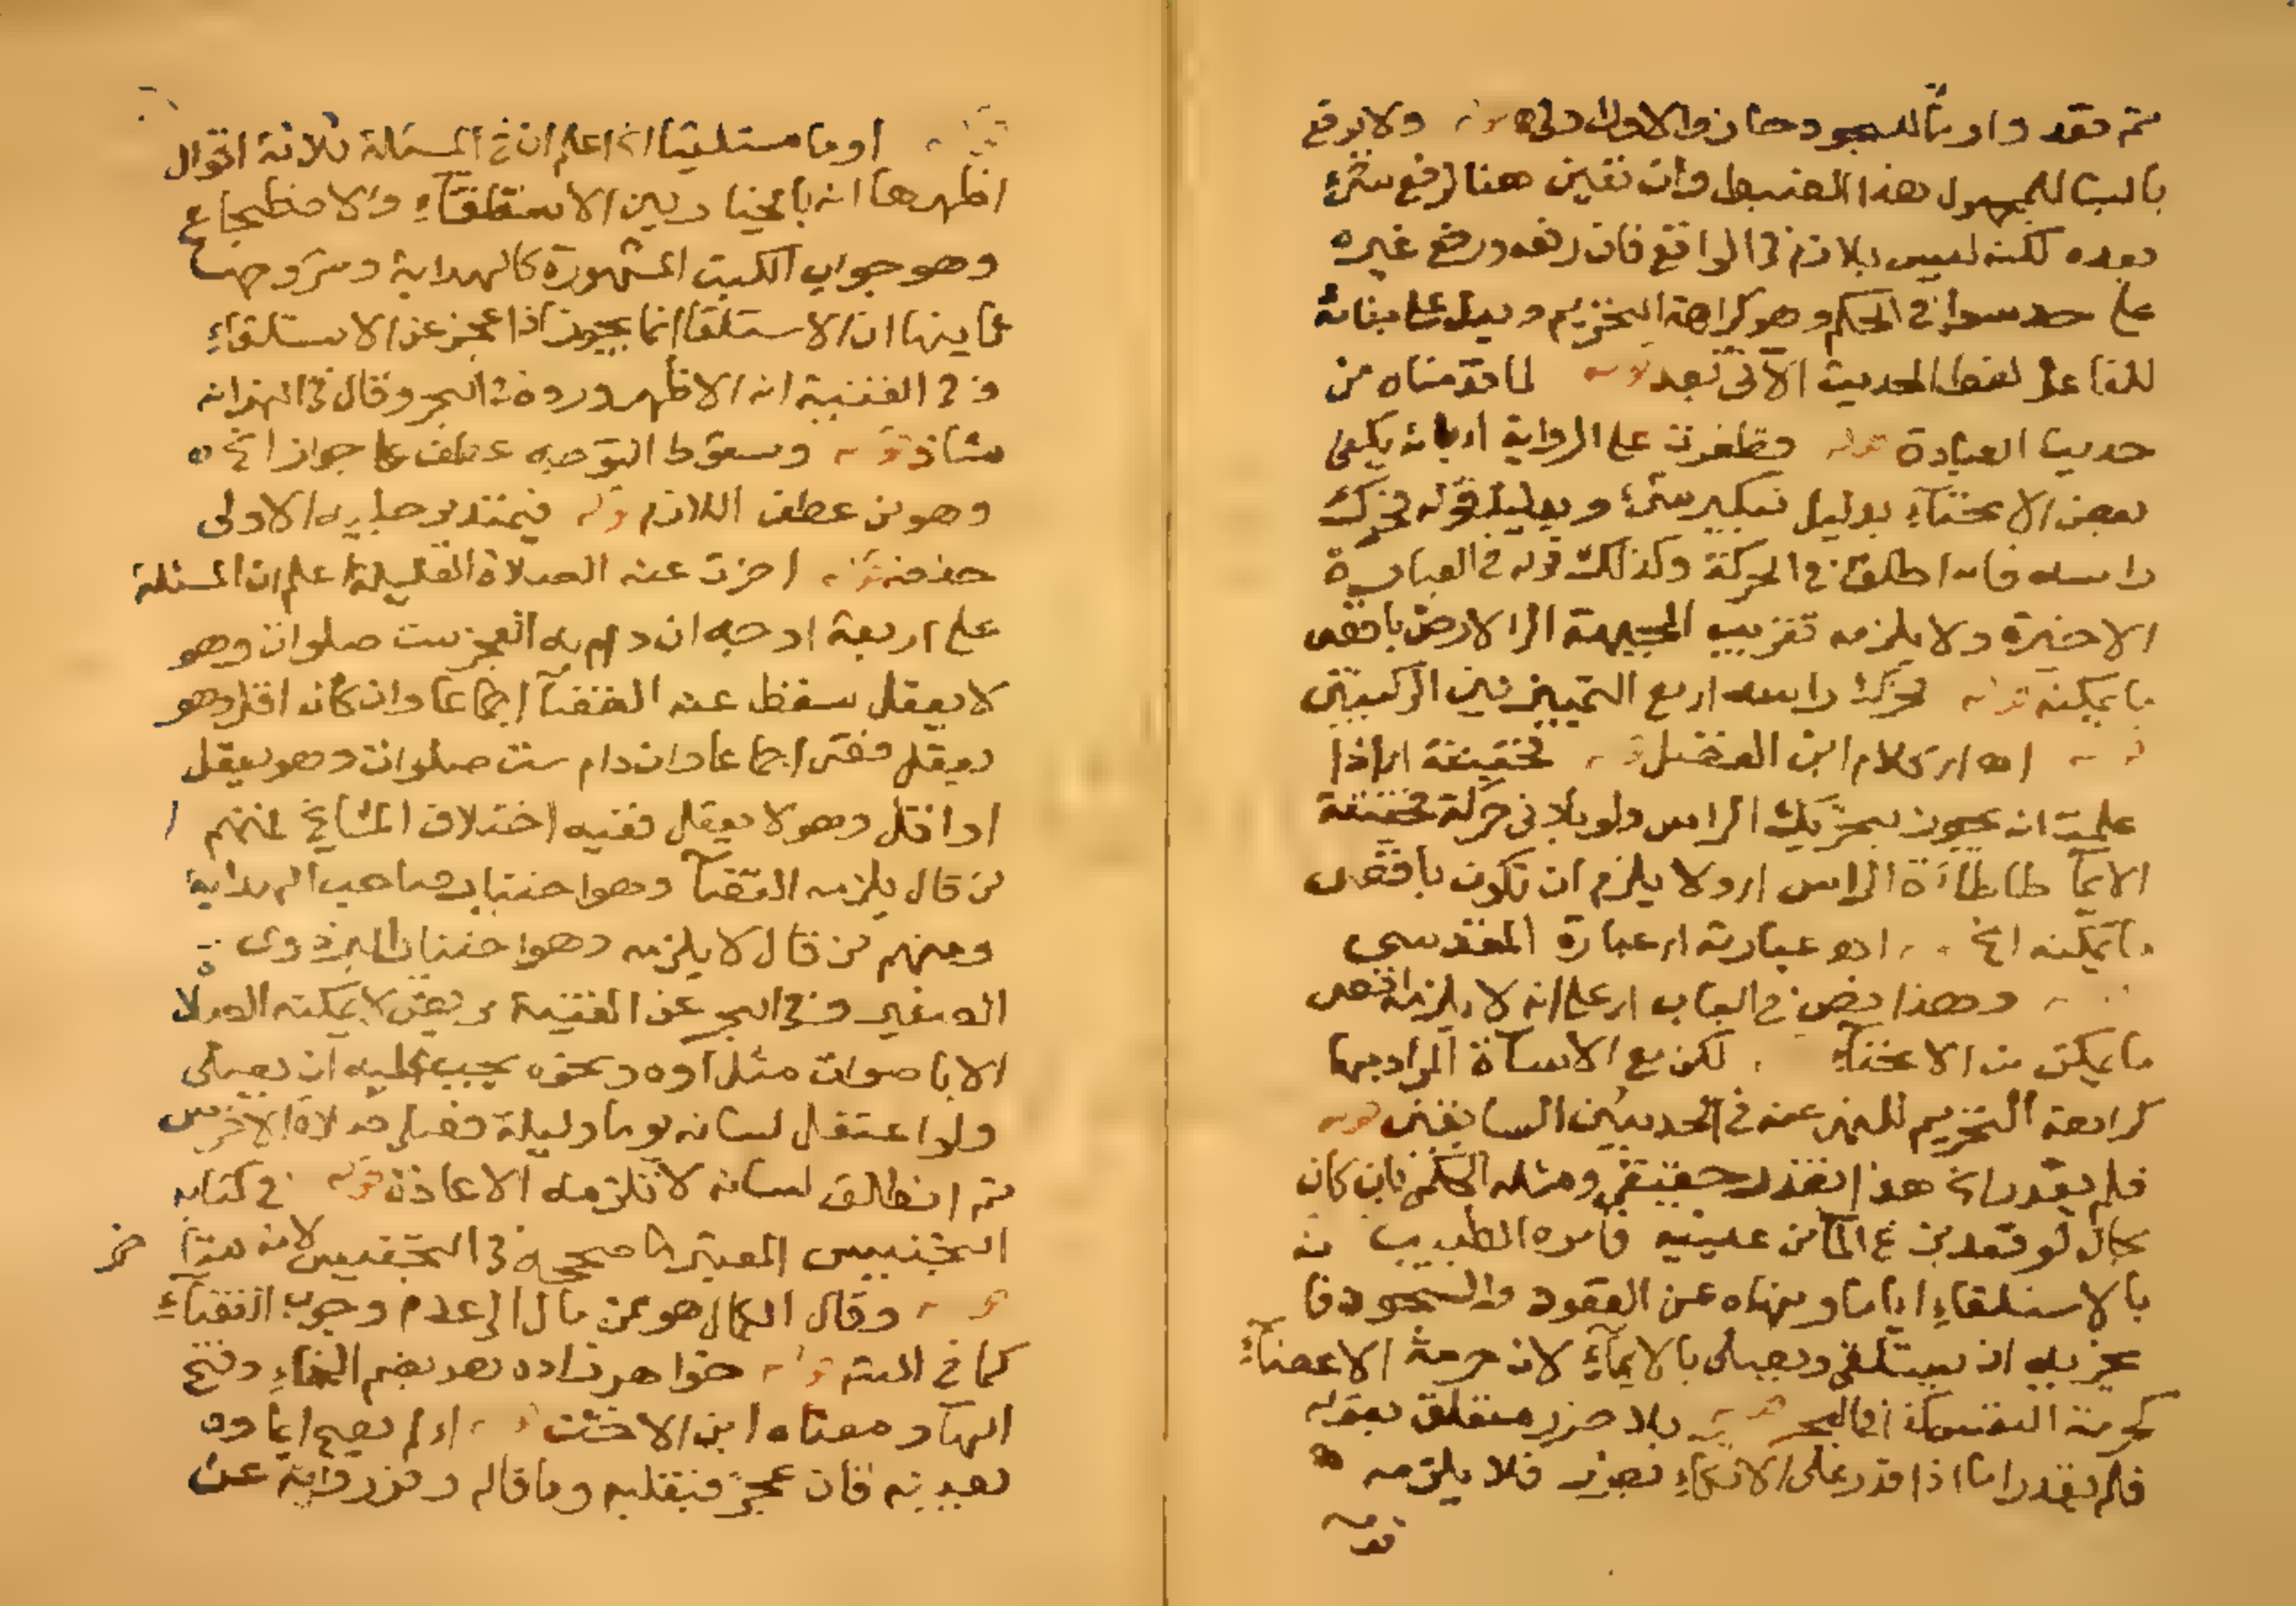 ثم قعد واومأ للسجود جاز والاول اولى قوله ولا يرفع
بالبنا للمجهول هذا الضبط وان تعين هنا لرفع شئ
بعده لكنه ليس بلازم في الواقع فان رفعه ورفع غيره
على حد سوا في الحكم وهو كراهة التحريم ويدل على بنائه
للفاعل لفظ الحديث الآتي بعد قوله لما قدمناه من
حديث العيادة قوله وظفرت على الرواية اى بانه يكفى
بعض الانحناء بدليل تنكير شئ وبدليل قوله تحرك
راسه فانه اطلق في الحركة وكذلك قوله في العبارة
الاخيرة ولا يلزمه تقريب الجبهة الى الارض باقصى
ما يمكنه قوله تحرك راسه
اه اى كلام ابن الفضل قوله حقيقة اى اذا
علمت انه يجوز بتحريك الراس ولو بادنى حركة حقيقة
الايما طاطاة الراس اى ولا يلزم ان تكون باقصى
ما يمكنه الخ اه وعبارته اى عبارة المقدسي
وهذا نص في الباب اى على انه لا يلزمه اقصى
ما يمكن من الانحناء لكن مع الاساة المراد بها
كراهة التحريم للنهى عنه في الحديثين السابقين قوله
فلم يقدر الخ هذا تعذر حقيقى ومثله الحكمى بان كان
بحال لو قعد بزغ الماء من عينيه فامره الطبيب
بالاستلقاء اياما ونهاه عن القعود والسجود فا
يجزيه ان يستلقى ويصلى بالايماء لان حرمة الاعضاء
كحرمة النفس كذا في البحر قوله بلا ضرر متعلق بقوله
فلم يقدر اما اذا قدر على الاتكاء بضرر فلا يلزمه
قوله
قوله اوما مستلقيا الخ اعلم ان في المسئلة ثلاثة اقوال
اظهرها انه بالخيار بين الاستلقاء والاضطجاع
وهو جواب الكتب المشهورة كالهداية وشروحها
ثانيها ان الاستلقا انما يجوز اذا عجز عن الاستلقاء
وفي القنية انه الاظهر ورده في البحر وقال في النهر انه
شاذ قوله وسقوط التوجه عطف على جواز الخ
وهو من عطف اللازم قوله فيمتد رجليه الاولى
حذفه قوله اخرت عنه الصلاة القليلة اعلم ان المسئلة
على اربعة اوجه ان دام به العجز ست صلوات وهو
لا يعقل سقط عنه القضا اجماعا وان كان اقل وهو
يعقل قضى اجماعا وان دام ست صلوات وهو يعقل
او اقل وهو لا يعقل ففيه اختلاف المشايخ فمنهم
من قال يلزمه القضا وهو اختيار صاحب الهداية
ومنهم من قال لا يلزمه وهو اختيار البزدوى
الصغير وفي البحر عن القنية مريض لا يمكنه الصلاة
الا باصوات مثل اوه ونحوه يجب عليه ان يصلى
ولو اعتقل لسانه يوما وليلة فصلى صلاة الاخرس
ثم انطلق لسانه لا تلزمه الاعادة قوله في كتابه
التجنيس المعتبر ما صححه في التجنيس لانه متاخر
قوله وقال الكمال هو ممن مال الى عدم وجوب القضاء
كما في المتن قوله خواهر زاده هو بضم الخاء وفتح
الهاء ومعناه ابن الاخت قوله اى لم يصح ايماوه
بعينه فان عجز فبقلبه وما قاله زفر رواية عن